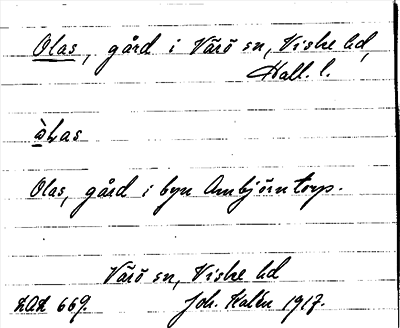 Olas, gård i Värö sn, Viske hd,
Hall. l.
Olas, gård i byn Ambjörntorp.
Värö sn, Viske hd
669. Joh. Kalén 1917.